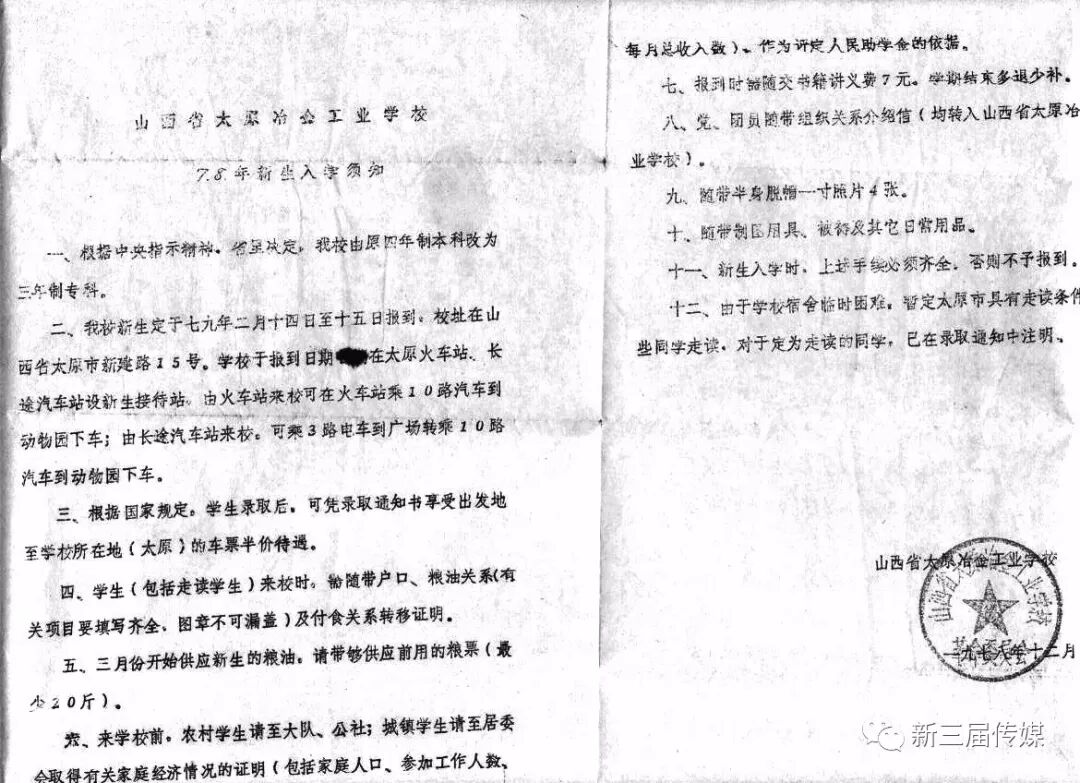 山西省太原冶金工业学校
78年新生入学须知
一、根据中央指示精神。省里决定，我校由原四年制本科改为
三年制专科。
二、我校新生定于七九年二月十四日至十五日报到，校址在山
西省太原市新建路15号。学校于报到日期在太原火车站、长
途汽车站设新生接待站。由火车站来校可在火车站乘10路汽车到
动物园下车；由长途汽车站来校。可乘3路电车到广场转乘10路
汽车到动物园下车。
三、根据国家规定。学生录取后，可凭录取通知书享受出发地
至学校所在地（太原）的车票半价待遇。
四、学生（包括走读学生）来校时。需随带户口、粮油关系（有
关项目要填写齐全、图章不可漏盖）及付食关系转移证明。
五、三月份开始供应新生的粮油。请带够供应前用的粮票（最
少20斤）。
、来学校前。农村学生请至大队、公社；城镇学生请至居委
会取得有关家庭经济情况的证明（包括家庭人口、参加工作人数、
每月总收入数）、作为评定人民助学金的依据。
七、报到时需随交书籍讲义费7元。学期结束多退少补。
八、党、团员随带组织关系介绍信（均转入山西省太原冶
业学校）。
九、随带半身脱帽一寸照片4张。
十、随带制图用具、被褥及其它日常用品。
十一、新生入学时，上述手续必须齐全，否则不予报到。
十二、由于学校宿舍临时困难，暂定太原市具有走读条件
些同学走读，对于定为走读的同学，已在录取通知中注明。
山西省太原冶金工业学校
一九七八年十二月
新三届传媒